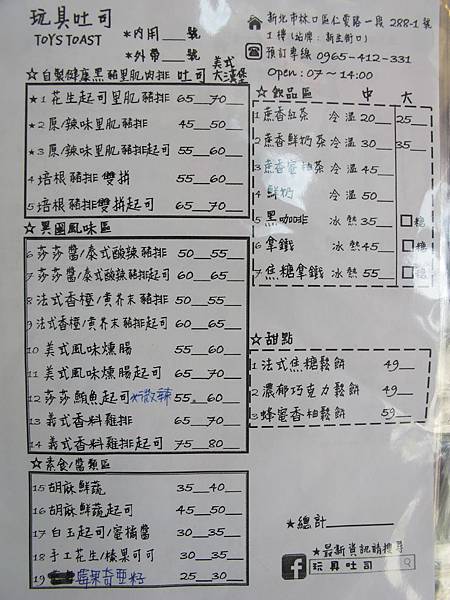 玩具吐司
TOYS TOAST
＊內用___號
＊外帶___號
新北市林口區仁愛路一段288-1號
1樓(站牌：新生街口)
預訂專線 0965-412-331
Open：07～14:00
☆自製健康黑豬里肌肉排 吐司 美式大漢堡
★1 花生起司里肌豬排 65__70__
★2 原/辣味里肌豬排 45__50__
★3 原/辣味里肌豬排起司 55__60__
4 培根豬排雙拼 55__60__
5 培根豬排雙拼起司 65__70__
☆異國風味區
6 莎莎醬/泰式酸辣豬排 50__55__
7 莎莎醬/泰式酸辣豬排起司 60__65__
8 法式香橙/黃芥末豬排 50__55__
9 法式香橙/黃芥末豬排起司 60__65__
10 美式風味燻腸 55__60__
11 美式風味燻腸起司 65__70__
12 莎莎鮪魚起司 *微辣 55__60__
13 義式香料雞排 65__70__
14 義式香料雞排起司 75__80__
☆素食/醬類區
15 胡麻鮮蔬 35__40__
16 胡麻鮮蔬起司 45__50__
17 白玉起司/蜜橘醬 30__35__
18 手工花生/榛果可可 30__35__
19 莓果奇亞籽 25__30__
☆飲品區 中 大
1 蔗香紅茶 冷 溫 20__ 25__
2 蔗香鮮奶茶 冷 溫 30__ 35__
3 蔗香蜜柚茶 冷 溫 45__
4 鮮奶 冷 溫 50__
5 黑咖啡 冰 熱 35__ □糖
6 拿鐵 冰 熱 45__ □糖
7 焦糖拿鐵 冰 熱 55__ □糖
☆甜點
1 法式焦糖鬆餅 49__
2 濃郁巧克力鬆餅 49__
3 蜂蜜香柚鬆餅 59__
★總計________
★最新資訊請搜尋
f 玩具吐司